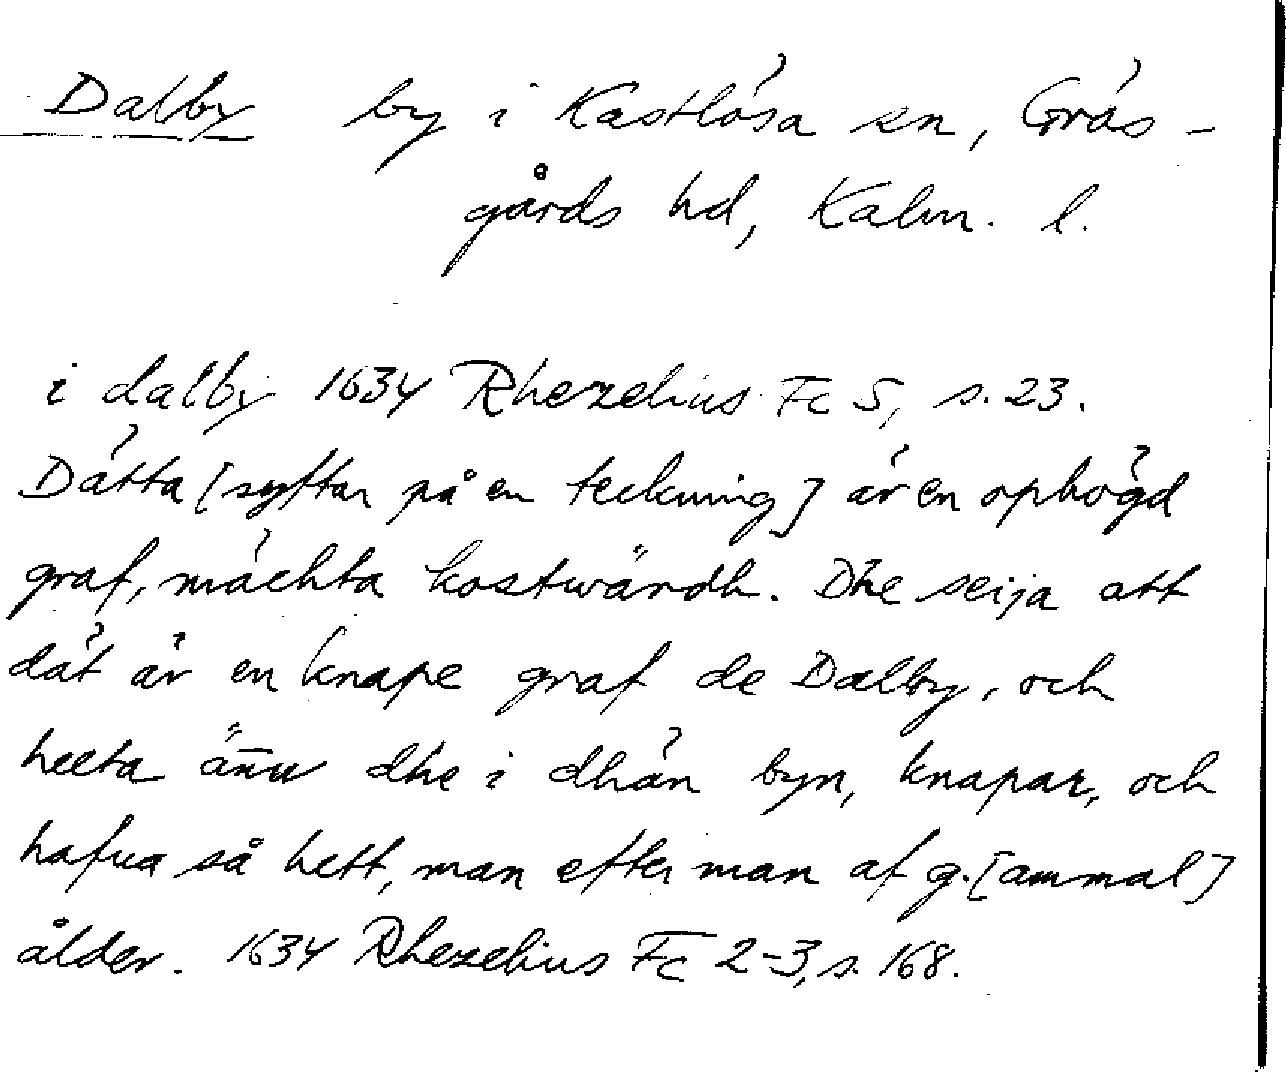 Dalby by i Kastlösa sn, Gräs-
gårds hd, Kalm. l.
i dalby 1634 Rhezelius Fc 5, s. 23.
Dätta [syftar på en teckning] är en ophögd
graf, mächta kostwärdh. Dhe seija att
dät är en knape graf de Dalby, och
heeta än̄u dhe i dhän byn, knapar, och
hafua så hett, man efter man af g.[ammal]
ålder. 1634 Rhezelius Fc 2-3, s. 168.